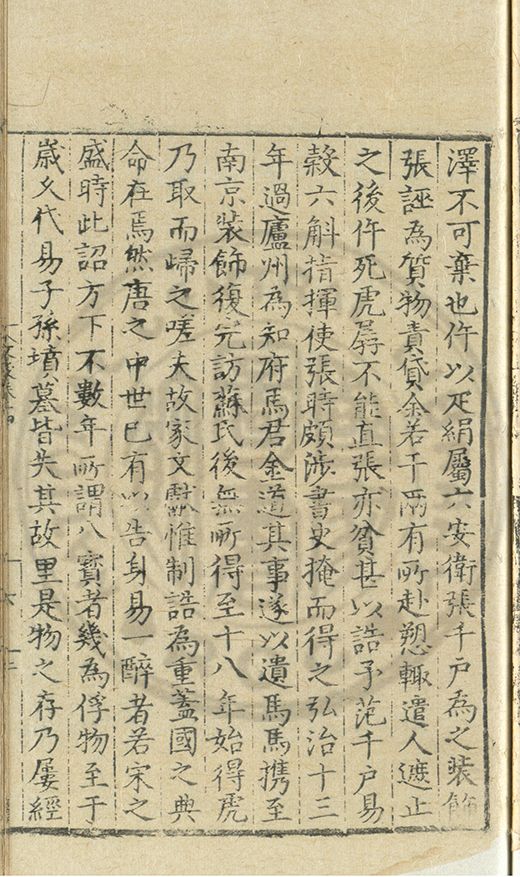 澤不可棄也仵以疋絹屬六安衛張千戶為之裝飾
張誣為質物責貸金若干兩有所赴愬輙遣人遮止
之後仵死虎孱不能直張亦貧甚以誥予范千戶易
糓六斛指揮使張時頗涉書史掩而得之弘治十三
年過廬州為知府馬君金道其事遂以遺馬馬携至
南京裝飾復完訪蘇氏後無所得至十八年始得虎
乃取而歸之嗟夫故家文獻惟制誥為重蓋國之典
命在焉然唐之中世已有以告身易一醉者若宋之
盛時此詔方下不數年所謂八寳者幾為俘物至于
歲久代易子孫墳墓皆失其故里是物之存乃屢經